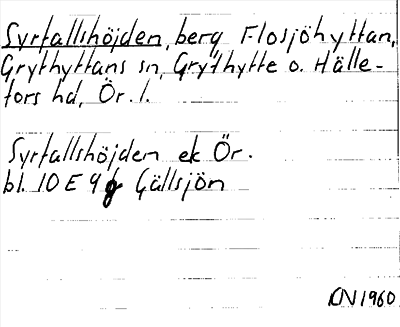 Syrtallshöjden, berg Flosjöhyttan,
Grythyttans sn, Grythytte o. Hälle-
fors hd, Ör. l.
Syrtallshöjden ek Ör.
bl. 10 E 9 g Gällsjön
KN 1960